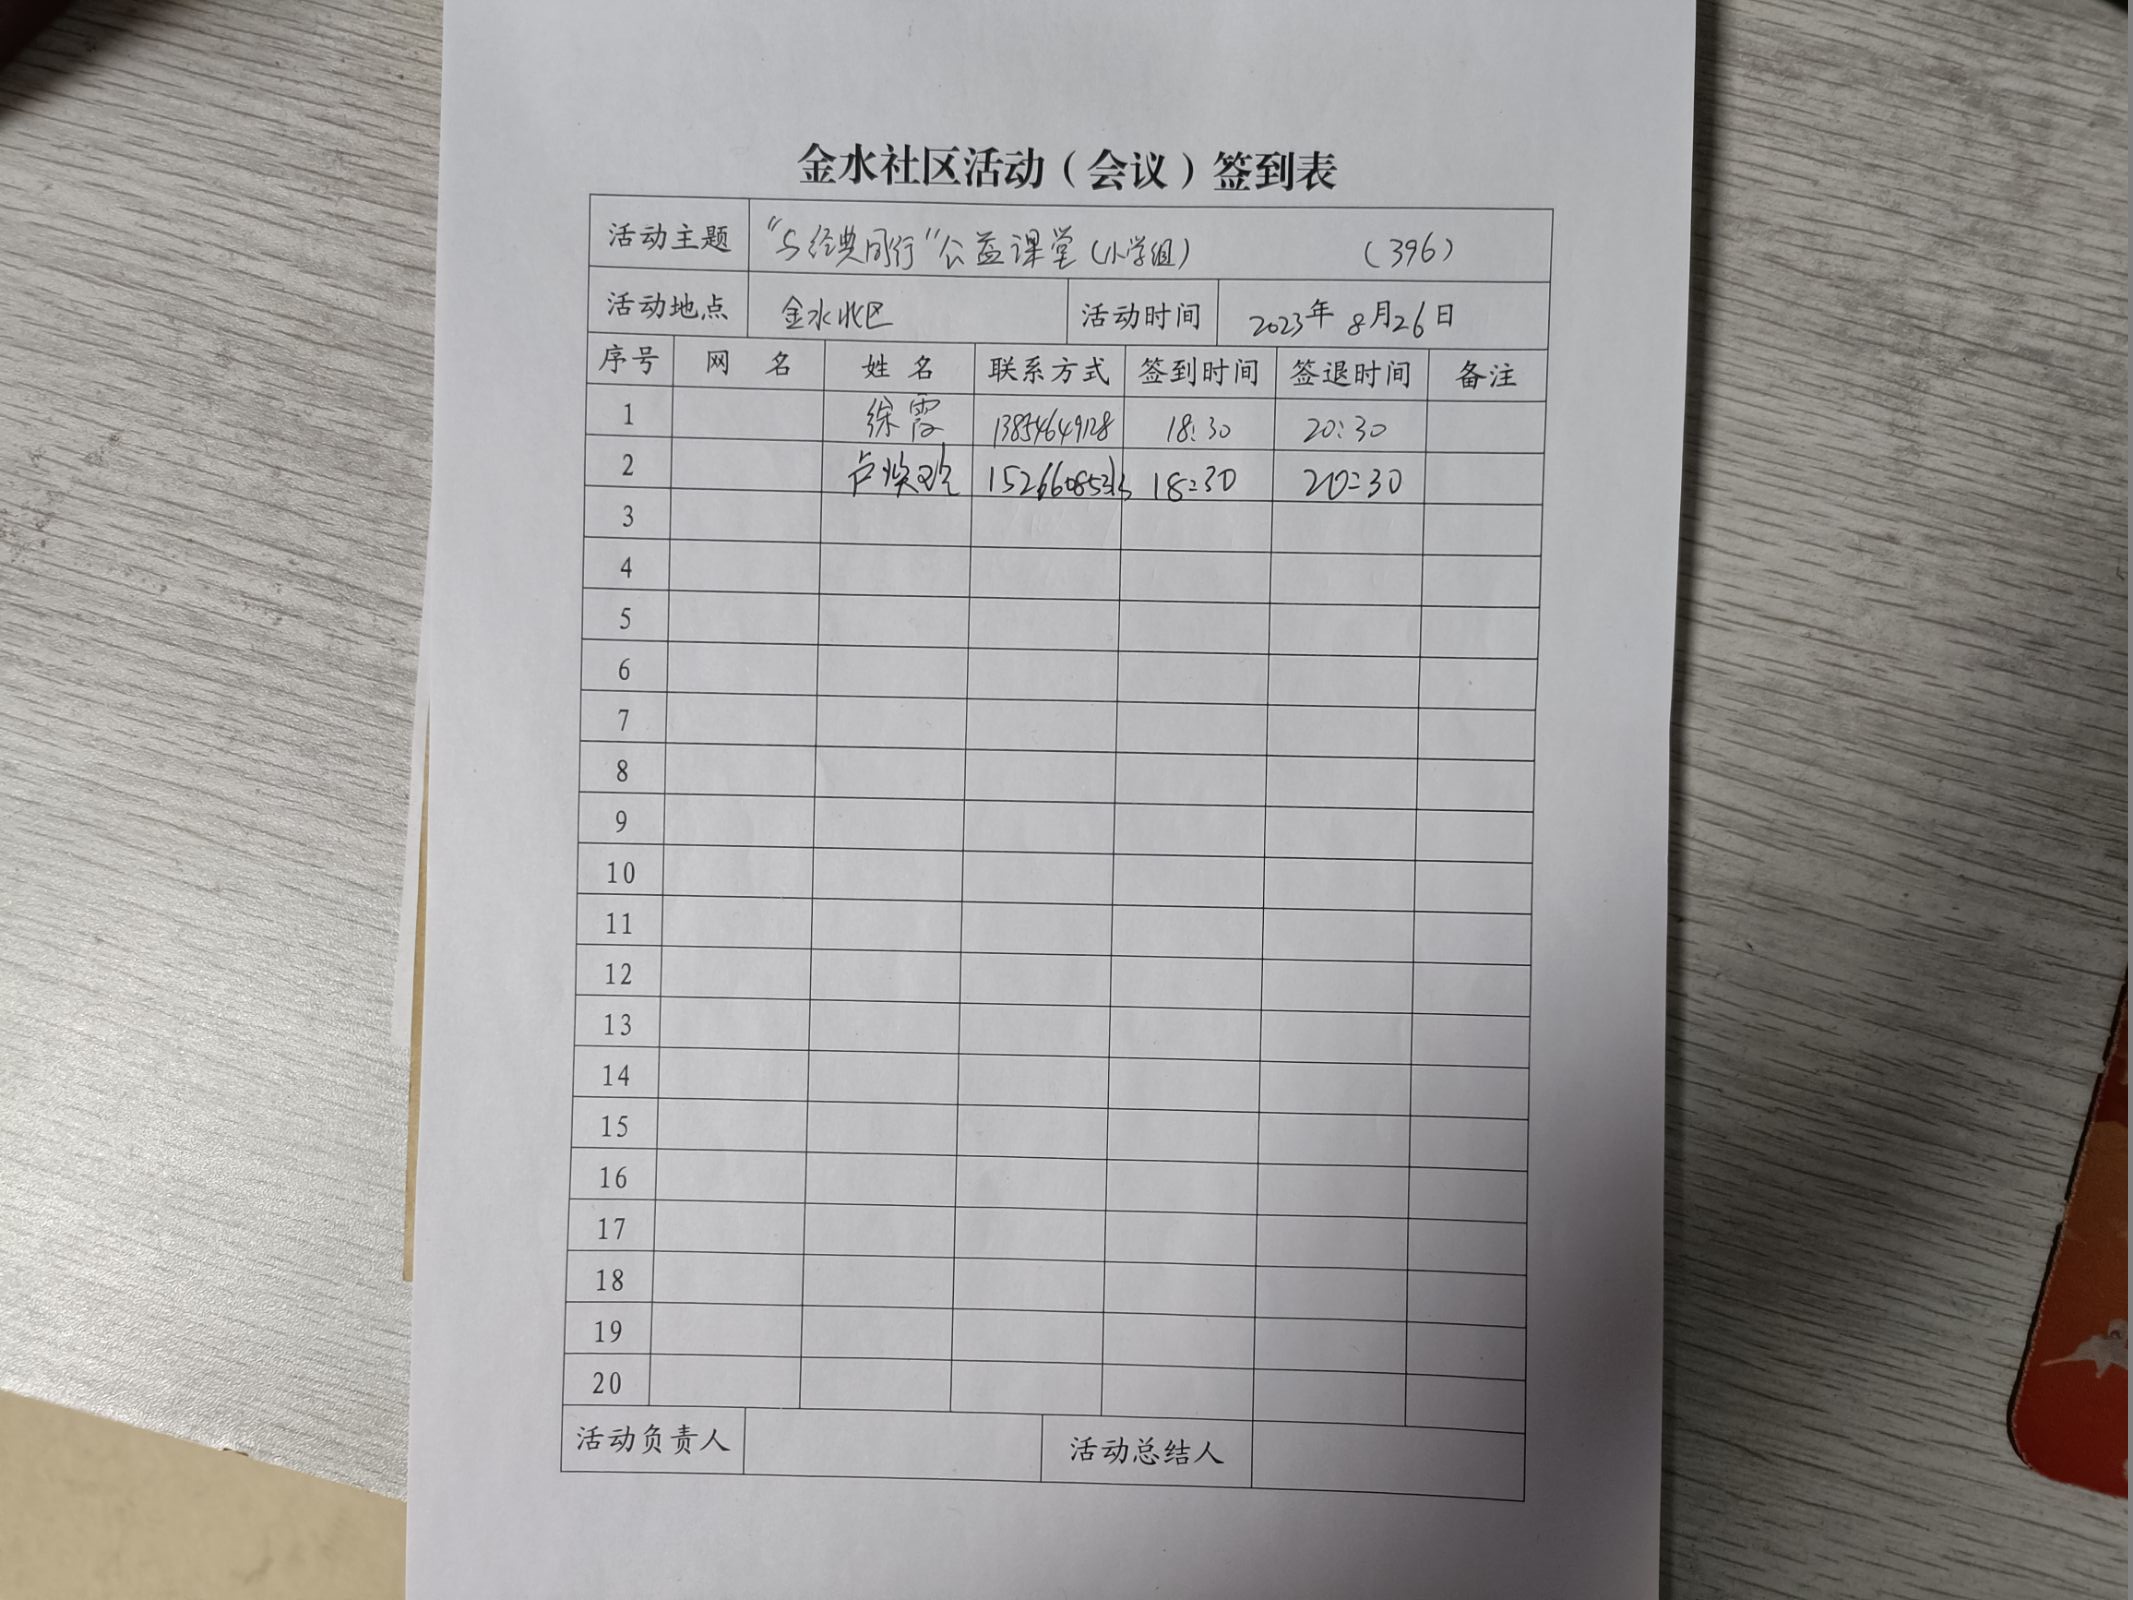 金水社区活动（会议）签到表
活动主题 “与经典同行”公益课堂（小学组） （396）
活动地点 金水北区 活动时间 2023年8月26日
序号 网 名 姓 名 联系方式 签到时间 签退时间 备注
1 徐霞 18:30 20:30
2 卢 18:30 20:30
3
4
5
6
7
8
9
10
11
12
13
14
15
16
17
18
19
20
活动负责人 活动总结人